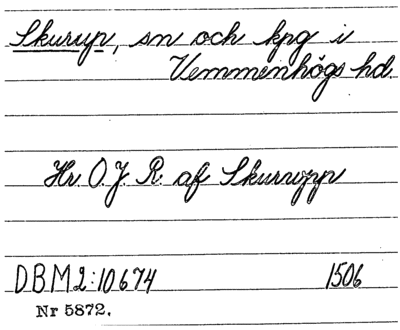 Skurup, sn och kpg i
Vemmenhögs hd.
Hr. O. J. R. af Skurupp
DBM2:10674 1506
Nr 5872.